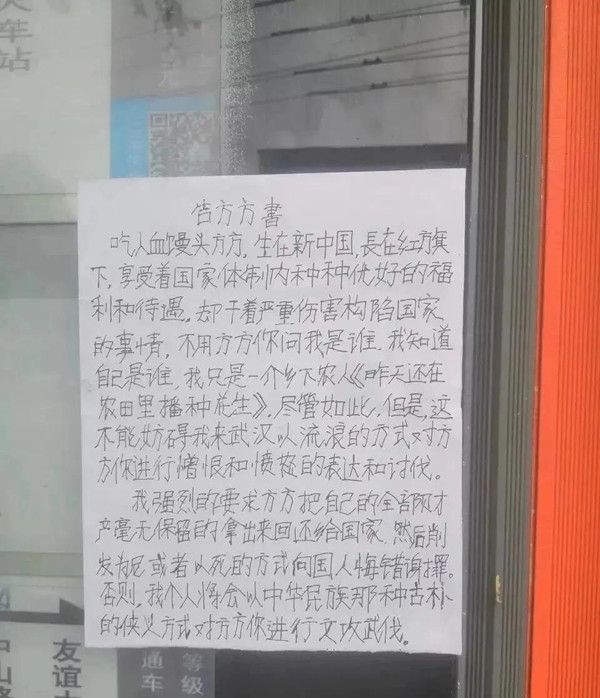 火车站
告方方書
吃人血馒头方方,生在新中国,長在红方旗
下,享受着国家体制内种种优好的福
利和待遇,却干着严重伤害构陷国家
的事情,不用方方你问我是谁,我知道
自己是谁,我只是一个乡下农人《昨天还在
农田里播种花生》,尽管如此,但是,这
不能妨碍我来武汉以流浪的方式对方
方你进行憎恨和愤怒的表达和讨伐。
我强烈的要求方方把自己的全部财才
产毫无保留的拿出来回还给国家,然后削
发为尼或者以死的方式向国人悔错谢罪。
否则,我个人将会以中华民族那种古朴
的侠义方式对方方你进行文攻武伐。
中山路
友谊大
通车
等级